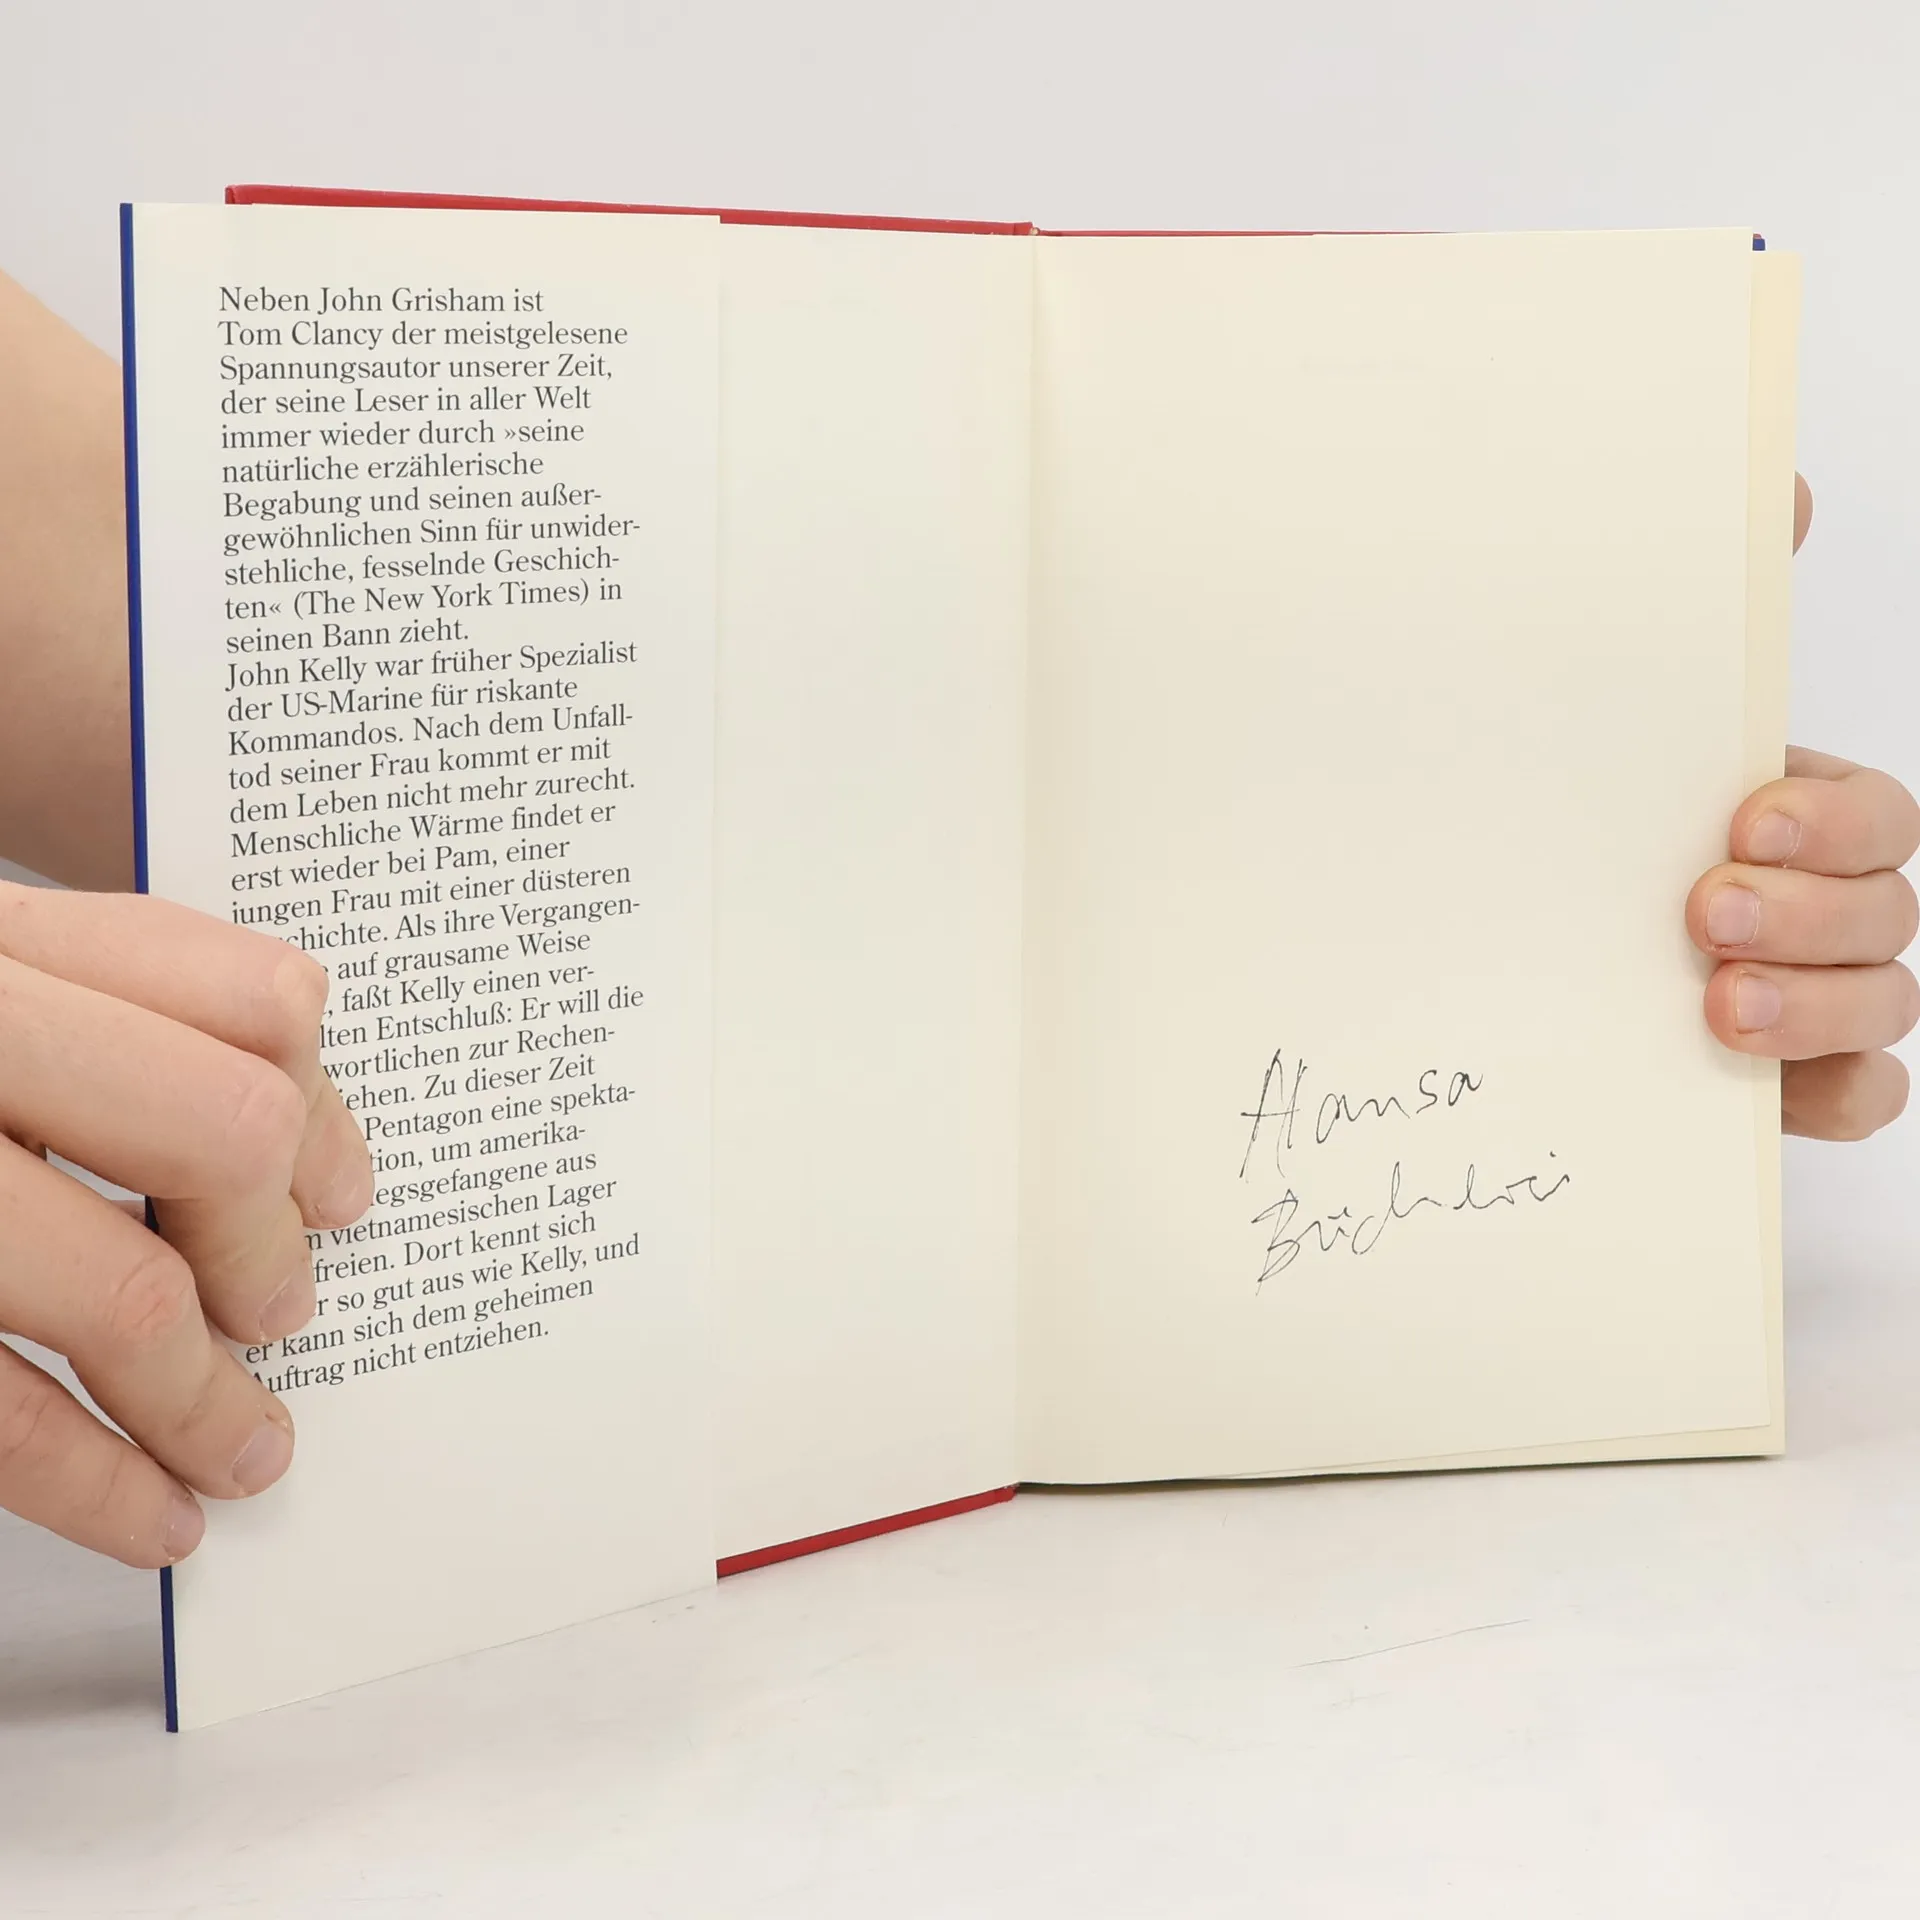 Neben John Grisham ist
Tom Clancy der meistgelesene
Spannungsautor unserer Zeit,
der seine Leser in aller Welt
immer wieder durch »seine
natürliche erzählerische
Begabung und seinen außer-
gewöhnlichen Sinn für unwider-
stehliche, fesselnde Geschich-
ten« (The New York Times) in
seinen Bann zieht.
John Kelly war früher Spezialist
der US-Marine für riskante
Kommandos. Nach dem Unfall-
tod seiner Frau kommt er mit
dem Leben nicht mehr zurecht.
Menschliche Wärme findet er
erst wieder bei Pam, einer
jungen Frau mit einer düsteren
chichte. Als ihre Vergangen-
auf grausame Weise
, faßt Kelly einen ver-
lten Entschluß: Er will die
wortlichen zur Rechen-
iehen. Zu dieser Zeit
Pentagon eine spekta-
tion, um amerika-
egsgefangene aus
m vietnamesischen Lager
freien. Dort kennt sich
r so gut aus wie Kelly, und
er kann sich dem geheimen
Auftrag nicht entziehen.
Hansa